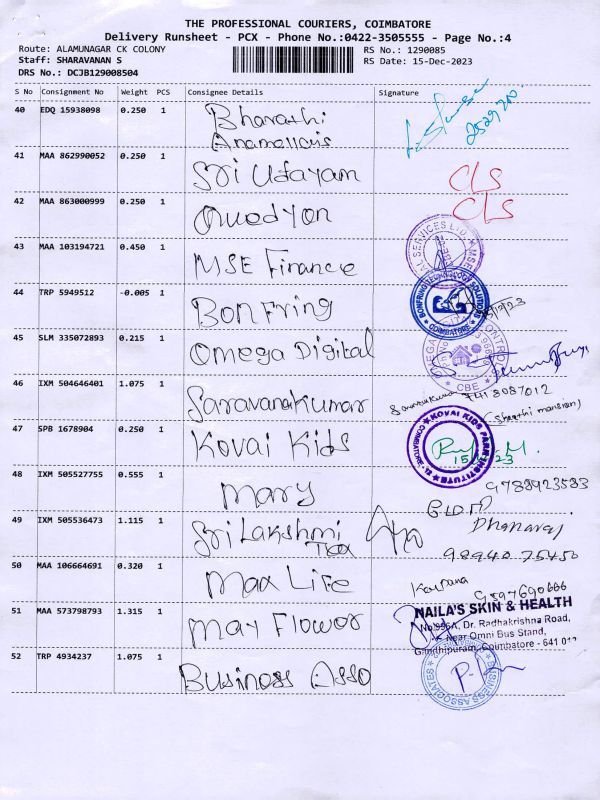 THE PROFESSIONAL COURIERS, COIMBATORE
Delivery Runsheet - PCX - Phone No.:0422-3505555 - Page No.:4
Route: ALAMUNAGAR CK COLONY RS No.: 1290085
Staff: SHARAVANAN S RS Date: 15-Dec-2023
DRS No.: DCJB129008504
S No Consignment No Weight PCS Consignee Details Signature
40 EDQ 15938098 0.250 1 Bharathi
41 MAA 862990052 0.250 1 Sri Udayam CLS
42 MAA 863000999 0.250 1 CLS
43 MAA 103194721 0.450 1 MSE Finance
44 TRP 5949512 -0.005 1 Bonfring
BONFRING TECHNOLOGY SOLUTIONS COIMBATORE
45 SLM 335072893 0.215 1 Omega Digital
CBE
46 IXM 504646401 1.075 1 Saravanakumar 7418087012
47 SPB 1678904 0.250 1 Kovai Kids
KOVAI KIDS PARK INSTITUTE
48 IXM 505527755 0.555 1 Mary 9788923583
49 IXM 505536473 1.115 1 Sri Lakshmi
Tex
Dhanaraj
98940 75450
50 MAA 106664691 0.320 1 Max Life Kalpana 9597690666
51 MAA 573798793 1.315 1 May Flower
NAILA'S SKIN & HEALTH
Dr. Radhakrishna Road,
Near Omni Bus Stand,
Gandhipuram, Coimbatore - 641 012
52 TRP 4934237 1.075 1 Business Asso
BUSINESS ASSOCIATES